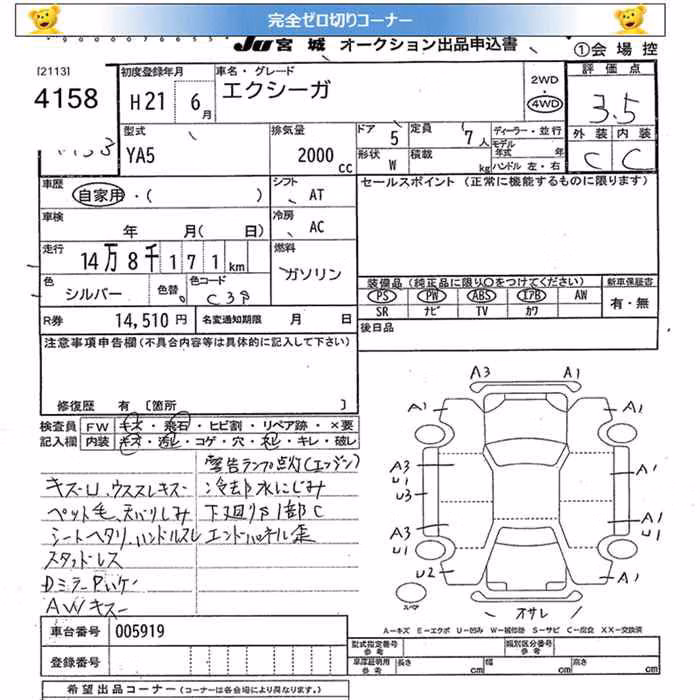 完全ゼロ切りコーナー
JU宮城 オークション出品申込書
①会場控
[2113]
4158
初度登録年月
H21 6月
車名・グレード
エクシーガ
2WD
・
4WD
評価点
3.5
外装 内装
C C
型式
YA5
排気量
2000 cc
ドア 5
定員 7人
形状 W
積載 kg
ディーラー・並行
モデル年式 年
ハンドル 左・右
車歴
自家用・( )
シフト
AT
セールスポイント (正常に機能するものに限ります)
車検
年 月( 日)
冷房
AC
走行
14万8千171km
燃料
ガソリン
色
シルバー
色替
色コード
装備品(純正品に限り○をつけてください)
新車保証書
PS PW ABS エアB AW
有・無
SR ナビ TV カワ
R券 14,510円
名変通知期限 月 日
後日品
注意事項申告欄(不具合内容等は具体的に記入して下さい)
修復歴 有 [箇所 ]
検査員 FW キズ・飛石・ヒビ割・リペア跡・×要
記入欄 内装 キズ・・コゲ・穴・・キレ・破レ
警告ランプ点灯(エンジン)
キズーU、ウススレキズー
冷却水にじみ
ペット毛、天バリしみ
下廻りサ1部C
シートヘタリ、ハンドルスレ
エンドパネル歪
スタッドレス
DミラーPハゲ
AWキズー
A3 A1
A1 A1
A3 U1
A1
U3
A3 U1
A1 U1
U2
A1
スペア
オサレ
A―キズ E―エクボ U―凹み W―補修跡 S―サビ C―腐食 XX―交換済
車台番号 005919
登録番号
型式指定番号 参考
類別区分番号 参考
車庫証明用 参考 長さ cm 幅 cm 高さ cm
希望出品コーナー (コーナーは各会場により異なります。)